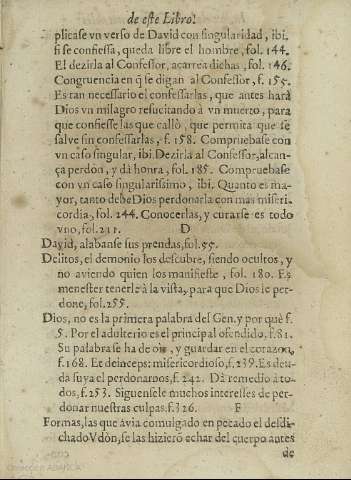 de este Libro.
plicase vn verso de David con singularidad, ibi.
si se confiessa, queda libre el hombre, fol. 144.
El dezirla al Confessor, acarrea dichas, fol. 146.
Congruencia en q̃ se digan al Confessor, f. 155.
Es tan necessario el confessarlas, que antes harà
Dios vn milagro resucitando à vn muerto, para
que confiesse las que callò, que permita que se
salve sin confessarlas, f. 158. Compruebase con
vn caso singular, ibi. Dezirla al Confessor, alcan-
ça perdon, y dà honra, fol. 185. Compruebase
con vn caso singularissimo, ibi. Quanto es ma-
yor, tanto debe Dios perdonarla con mas miseri-
cordia, fol. 244. Conocerlas, y curarse es todo
vno, fol. 211. D
David, alabanse sus prendas, fol. 55.
Delitos, el demonio los descubre, siendo ocultos, y
no aviendo quien los manifieste, fol. 180. Es
menester tenerle à la vista, para que Dios le per-
done, fol. 255.
Dios, no es la primera palabra del Gen. y por què f.
5. Por el adulterio es el principal ofendido. f. 81.
Su palabra se ha de oir, y guardar en el corazon,
f. 168. Et deinceps: misericordioso, f. 239. Es deu-
da suya el perdonarnos, f. 242. Dà remedio à to-
dos, f. 253. Siguensele muchos interesses de per-
donar nuestras culpas. f. 326. F
Formas, las que avia comulgado en pecado el desdi-
chado Vdòn, se las hizierõ echar del cuerpo antes
de